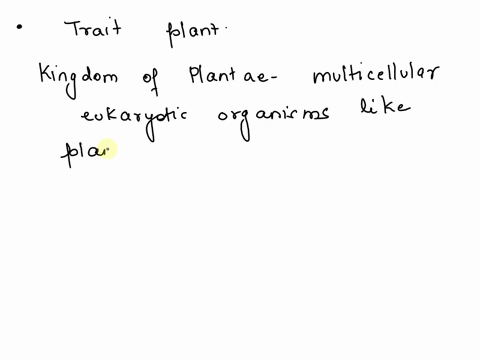 • Trait plant.
Kingdom of Plantae- multicellular
eukaryotic organisms like
pla